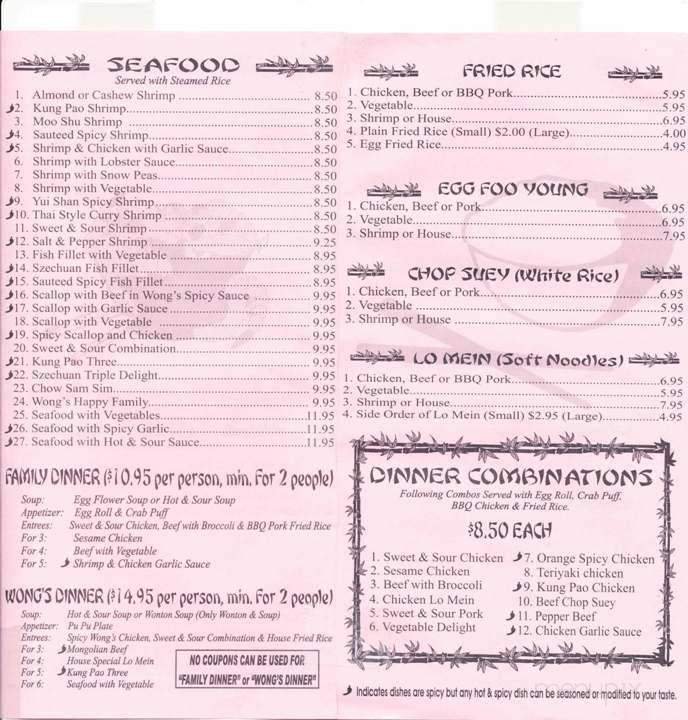 SEAFOOD
Served with Steamed Rice
1. Almond or Cashew Shrimp 8.50
2. Kung Pao Shrimp 8.50
3. Moo Shu Shrimp 8.50
4. Sauteed Spicy Shrimp 8.50
5. Shrimp & Chicken with Garlic Sauce 8.50
6. Shrimp with Lobster Sauce 8.50
7. Shrimp with Snow Peas 8.50
8. Shrimp with Vegetable 8.50
9. Yui Shan Spicy Shrimp 8.50
10. Thai Style Curry Shrimp 8.50
11. Sweet & Sour Shrimp 8.50
12. Salt & Pepper Shrimp 9.25
13. Fish Fillet with Vegetable 8.95
14. Szechuan Fish Fillet 8.95
15. Sauteed Spicy Fish Fillet 8.95
16. Scallop with Beef in Wong's Spicy Sauce 9.95
17. Scallop with Garlic Sauce 9.95
18. Scallop with Vegetable 9.95
19. Spicy Scallop and Chicken 9.95
20. Sweet & Sour Combination 9.95
21. Kung Pao Three 9.95
22. Szechuan Triple Delight 9.95
23. Chow Sam Sim 9.95
24. Wong's Happy Family 9.95
25. Seafood with Vegetables 11.95
26. Seafood with Spicy Garlic 11.95
27. Seafood with Hot & Sour Sauce 11.95
FAMILY DINNER ($10.95 per person, min. For 2 people)
Soup: Egg Flower Soup or Hot & Sour Soup
Appetizer: Egg Roll & Crab Puff
Entrees: Sweet & Sour Chicken, Beef with Broccoli & BBQ Pork Fried Rice
For 3: Sesame Chicken
For 4: Beef with Vegetable
For 5: Shrimp & Chicken Garlic Sauce
WONG'S DINNER ($14.95 per person, min. For 2 people)
Soup: Hot & Sour Soup or Wonton Soup (Only Wonton & Soup)
Appetizer: Pu Pu Plate
Entrees: Spicy Wong's Chicken, Sweet & Sour Combination & House Fried Rice
For 3: Mongolian Beef
For 4: House Special Lo Mein
For 5: Kung Pao Three
For 6: Seafood with Vegetable
NO COUPONS CAN BE USED FOR
"FAMILY DINNER" or "WONG'S DINNER"
FRIED RICE
1. Chicken, Beef or BBQ Pork 5.95
2. Vegetable 5.95
3. Shrimp or House 6.95
4. Plain Fried Rice (Small) $2.00 (Large) 4.00
5. Egg Fried Rice 4.95
EGG FOO YOUNG
1. Chicken, Beef or Pork 6.95
2. Vegetable 6.95
3. Shrimp or House 7.95
CHOP SUEY (White Rice)
1. Chicken, Beef or Pork 6.95
2. Vegetable 5.95
3. Shrimp or House 7.95
LO MEIN (Soft Noodles)
1. Chicken, Beef or BBQ Pork 6.95
2. Vegetable 5.95
3. Shrimp or House 7.95
4. Side Order of Lo Mein (Small) $2.95 (Large) 4.95
DINNER COMBINATIONS
Following Combos Served with Egg Roll, Crab Puff,
BBQ Chicken & Fried Rice.
$8.50 EACH
1. Sweet & Sour Chicken
2. Sesame Chicken
3. Beef with Broccoli
4. Chicken Lo Mein
5. Sweet & Sour Pork
6. Vegetable Delight
7. Orange Spicy Chicken
8. Teriyaki chicken
9. Kung Pao Chicken
10. Beef Chop Suey
11. Pepper Beef
12. Chicken Garlic Sauce
Indicates dishes are spicy but any hot & spicy dish can be seasoned or modified to your taste.